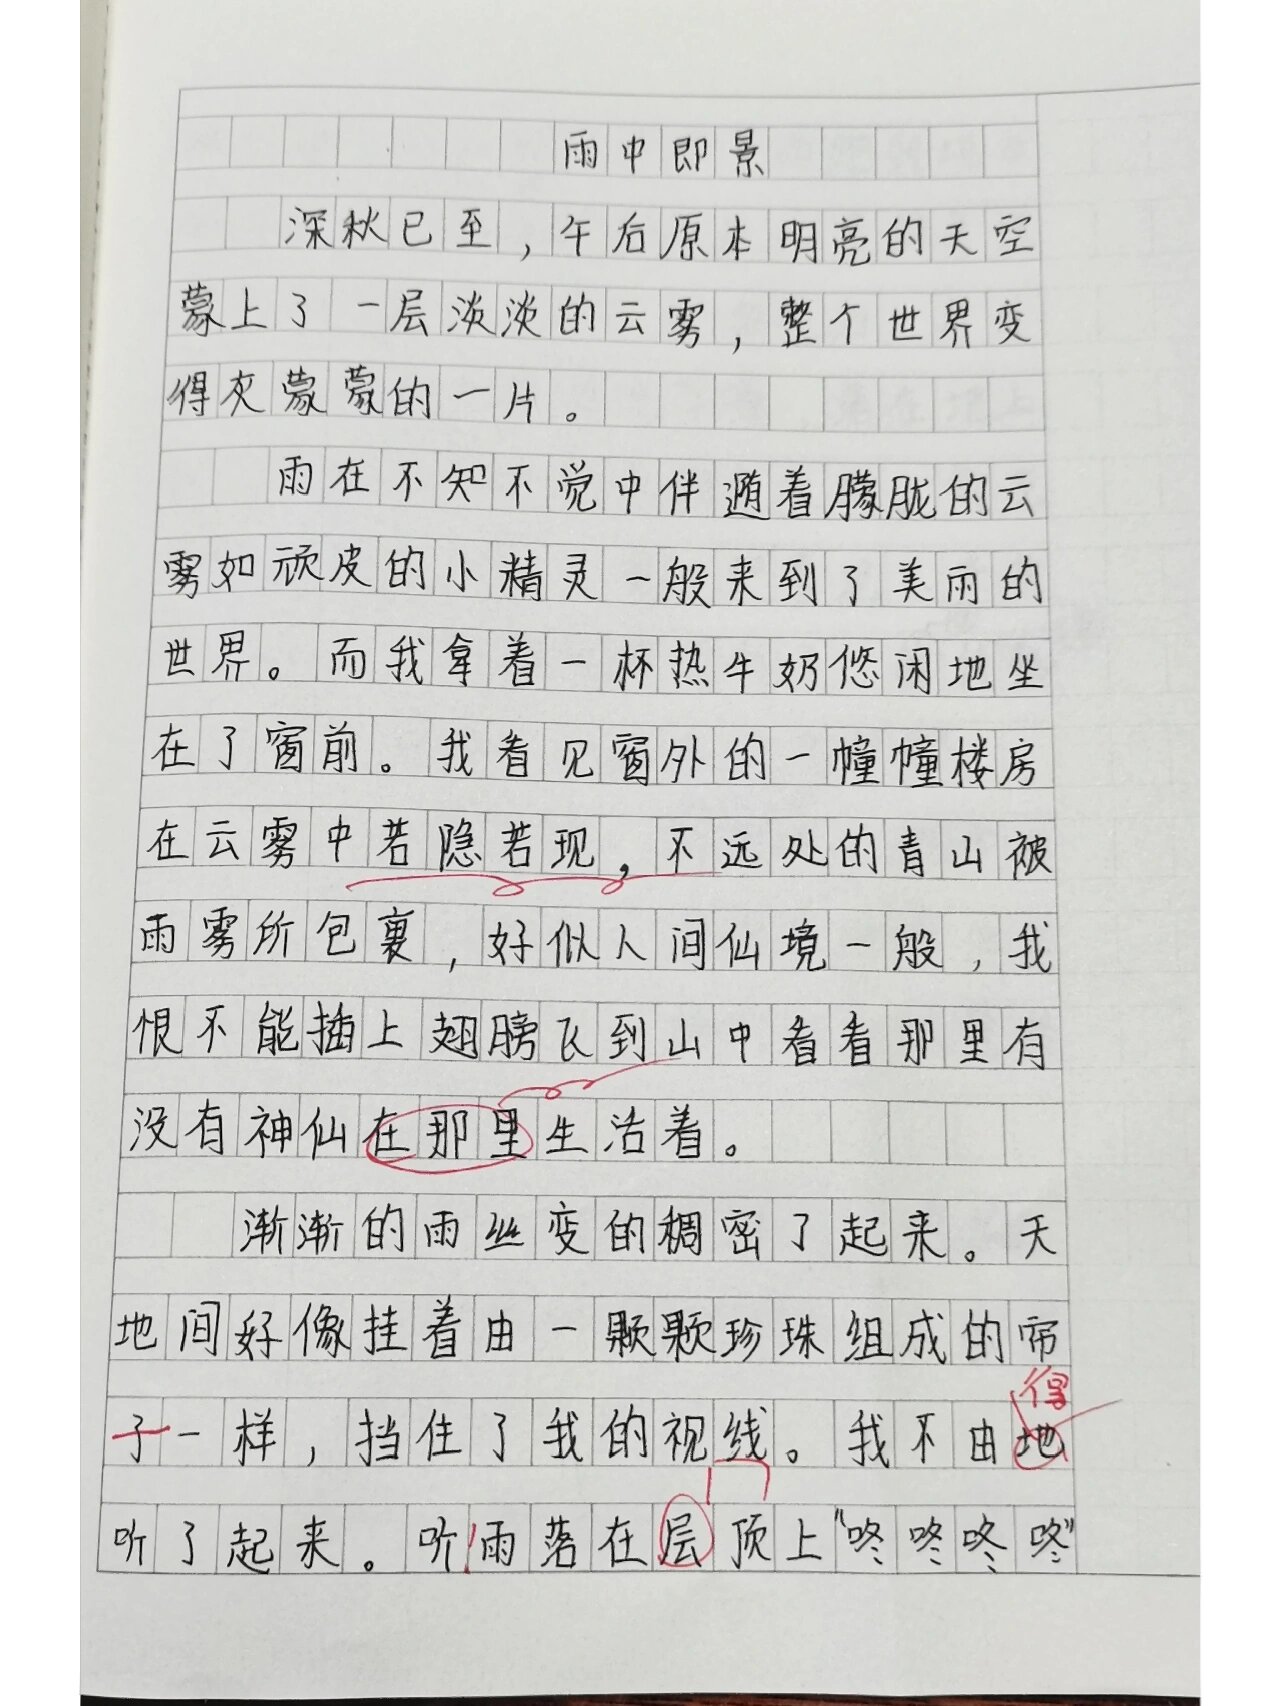 雨中即景
深秋已至，午后原本明亮的天空
蒙上了一层淡淡的云雾，整个世界变
得灰蒙蒙的一片。
雨在不知不觉中伴随着朦胧的云
雾如顽皮的小精灵一般来到了美丽的
世界。而我拿着一杯热牛奶悠闲地坐
在了窗前。我看见窗外的一幢幢楼房
在云雾中若隐若现，不远处的青山被
雨雾所包裹，好似人间仙境一般，我
恨不能插上翅膀飞到山中看看那里有
没有神仙在那里生活着。
渐渐的雨丝变的稠密了起来。天
地间好像挂着由一颗颗珍珠组成的帘
得
子一样，挡住了我的视线。我不由地
听了起来。听雨落在层顶上“咚咚咚咚”